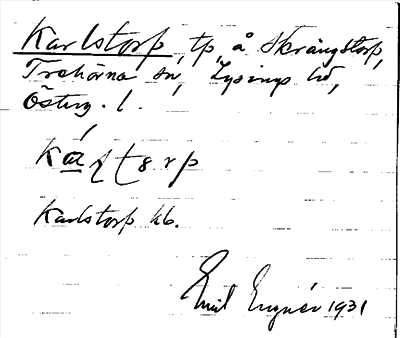 Karlstorp, tp, å Skrängstorp,
Trehörna sn, Lysings hd,
Österg. l.
Karlstorp kb.
Emil 1931